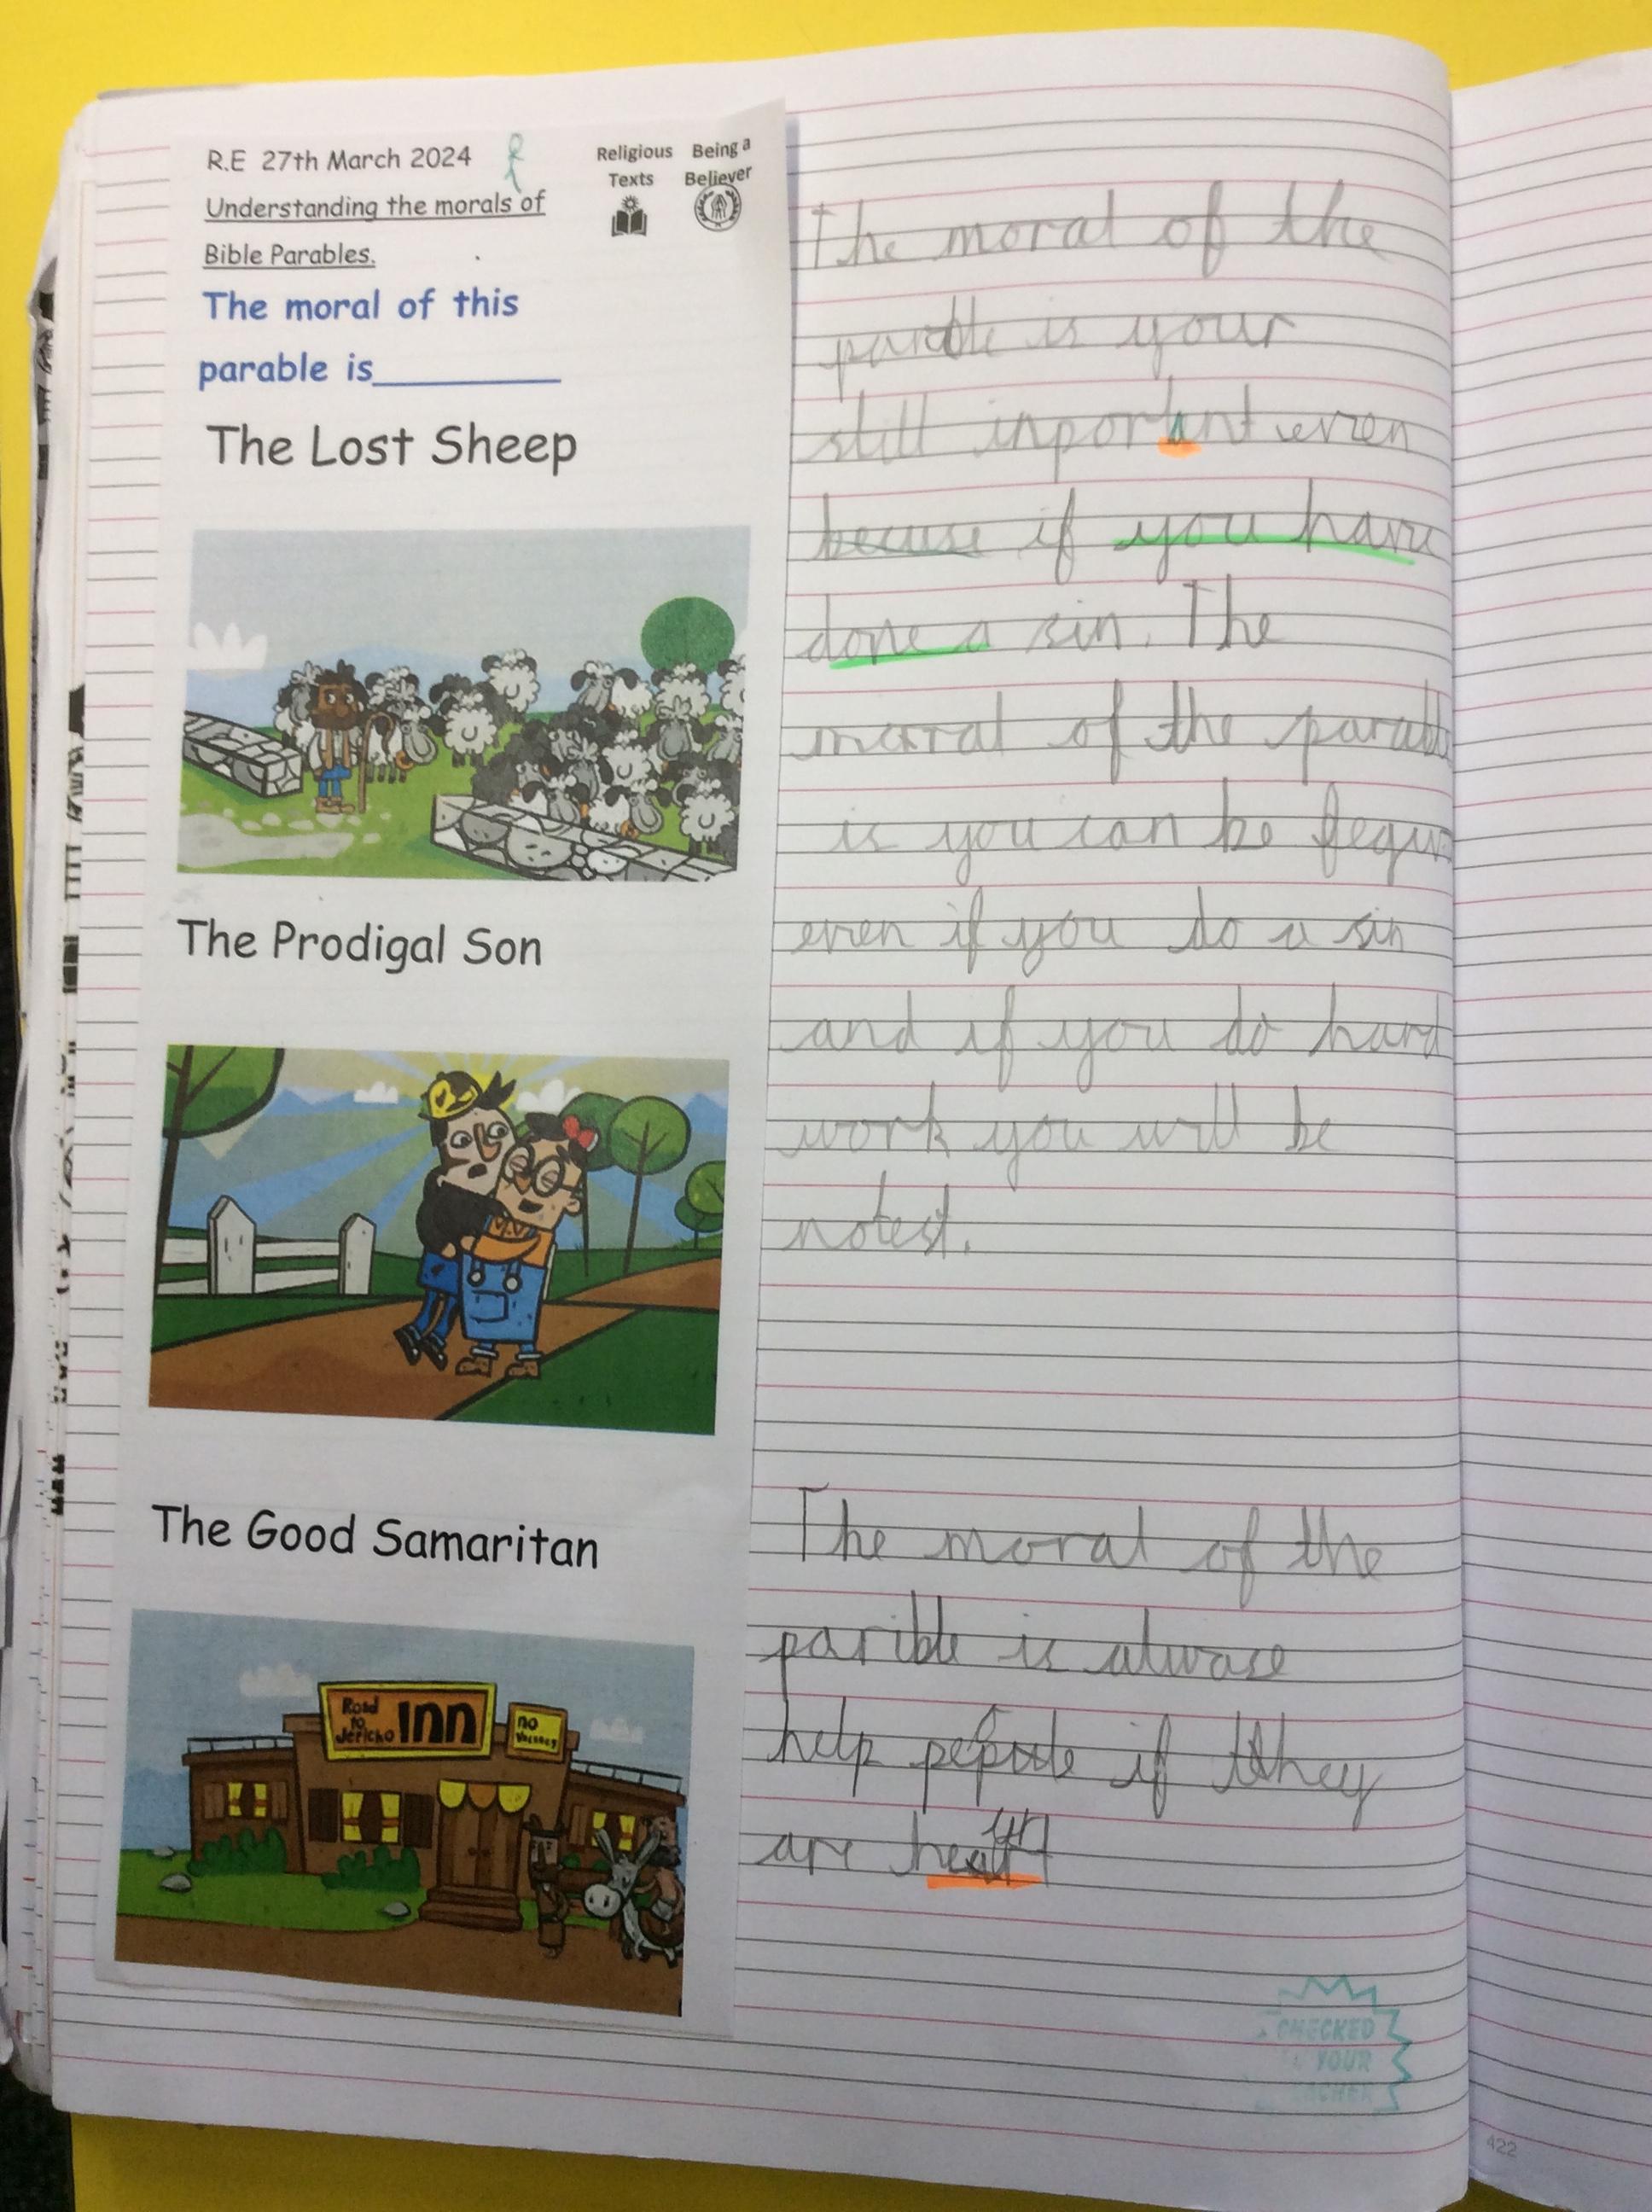 R.E 27th March 2024
Religious Texts
Being a Believer
Understanding the morals of
Bible Parables.
The moral of this
parable is_________
The Lost Sheep
The moral of the
parable is your
still inportant even
becuse if you have
done a sin. The
The Prodigal Son
moral of the parable
is you can be
even if you do a sin
and if you do hard
work you will be
notest.
The Good Samaritan
Road to Jericho Inn
no Vacancy
The moral of the
parible is alwase
help if they
are
CHECKED
YOUR
422